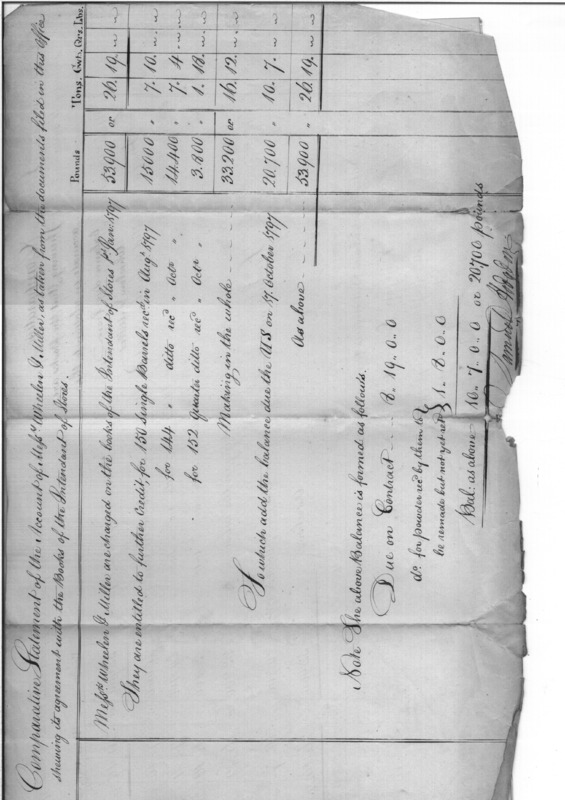 Comparative Statement of the Account of Messrs Whelen & Miller as taken from the documents filed in this Office
shewing its agreement with the Books of the Intendant of Stores.
Pounds Tons. Cwt. Qrs. Lbs.
Messrs Whelen & Miller are charged on the books of the Intendant of Stores 1st Jan: 1797 53,900 or 26. 19. " "
They are entitled to further Credit, for 150 Single Barrels recd in Augt 1797 15000 " 7. 10. " "
for 144 " ditto recd " Octr " 14.400 " 7. 4. " "
for 152 Quarter ditto recd " Octr " 3.800 " 1. 18. " "
Making in the whole 33,200 or 16. 12. " "
To which add the balance due the US on 17. October 1797 20,700 " 10. 7. " "
As above 53,900 " 26. 19. " "
Note The above Balance is formed as follows.
Due on Contract 8. 19. 0. 0
do. for powder recd by them to
be remade but not yet retd } 1. 8. 0. 0
Bal: as above 10. 7. 0. 0 or 20700 pounds